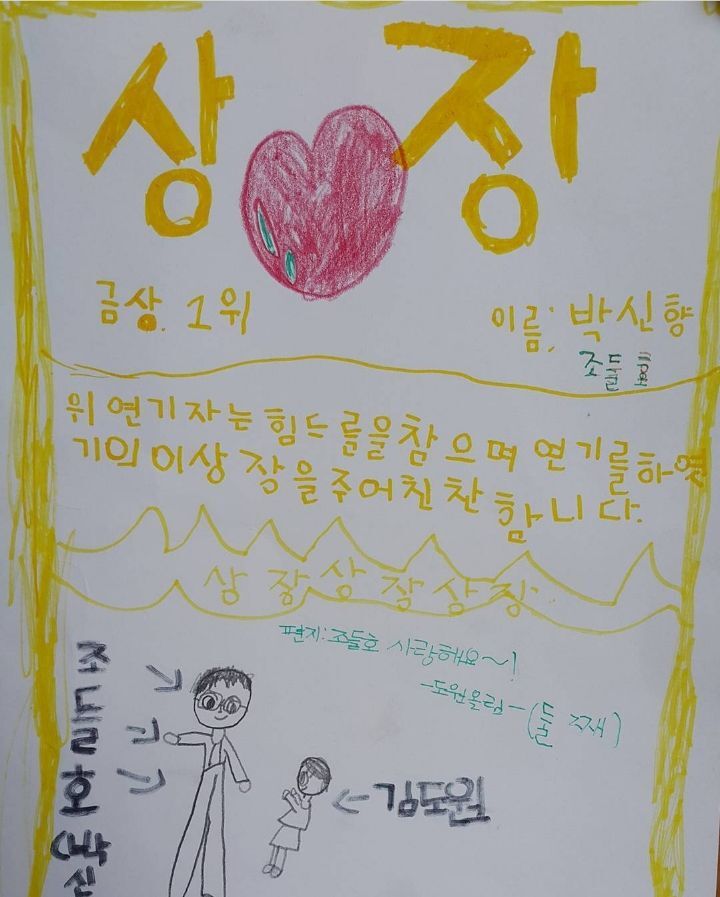 상 장
금상. 1위
이름: 박신향
조들호
위 연기자는 힘드름을참으며 연기를하였
기의 이상장을주어친찬 합니다.
상장상장상장
편지:조들호 사랑해요~!
-도원올림-(둘째)
조들호(박신
←김도원